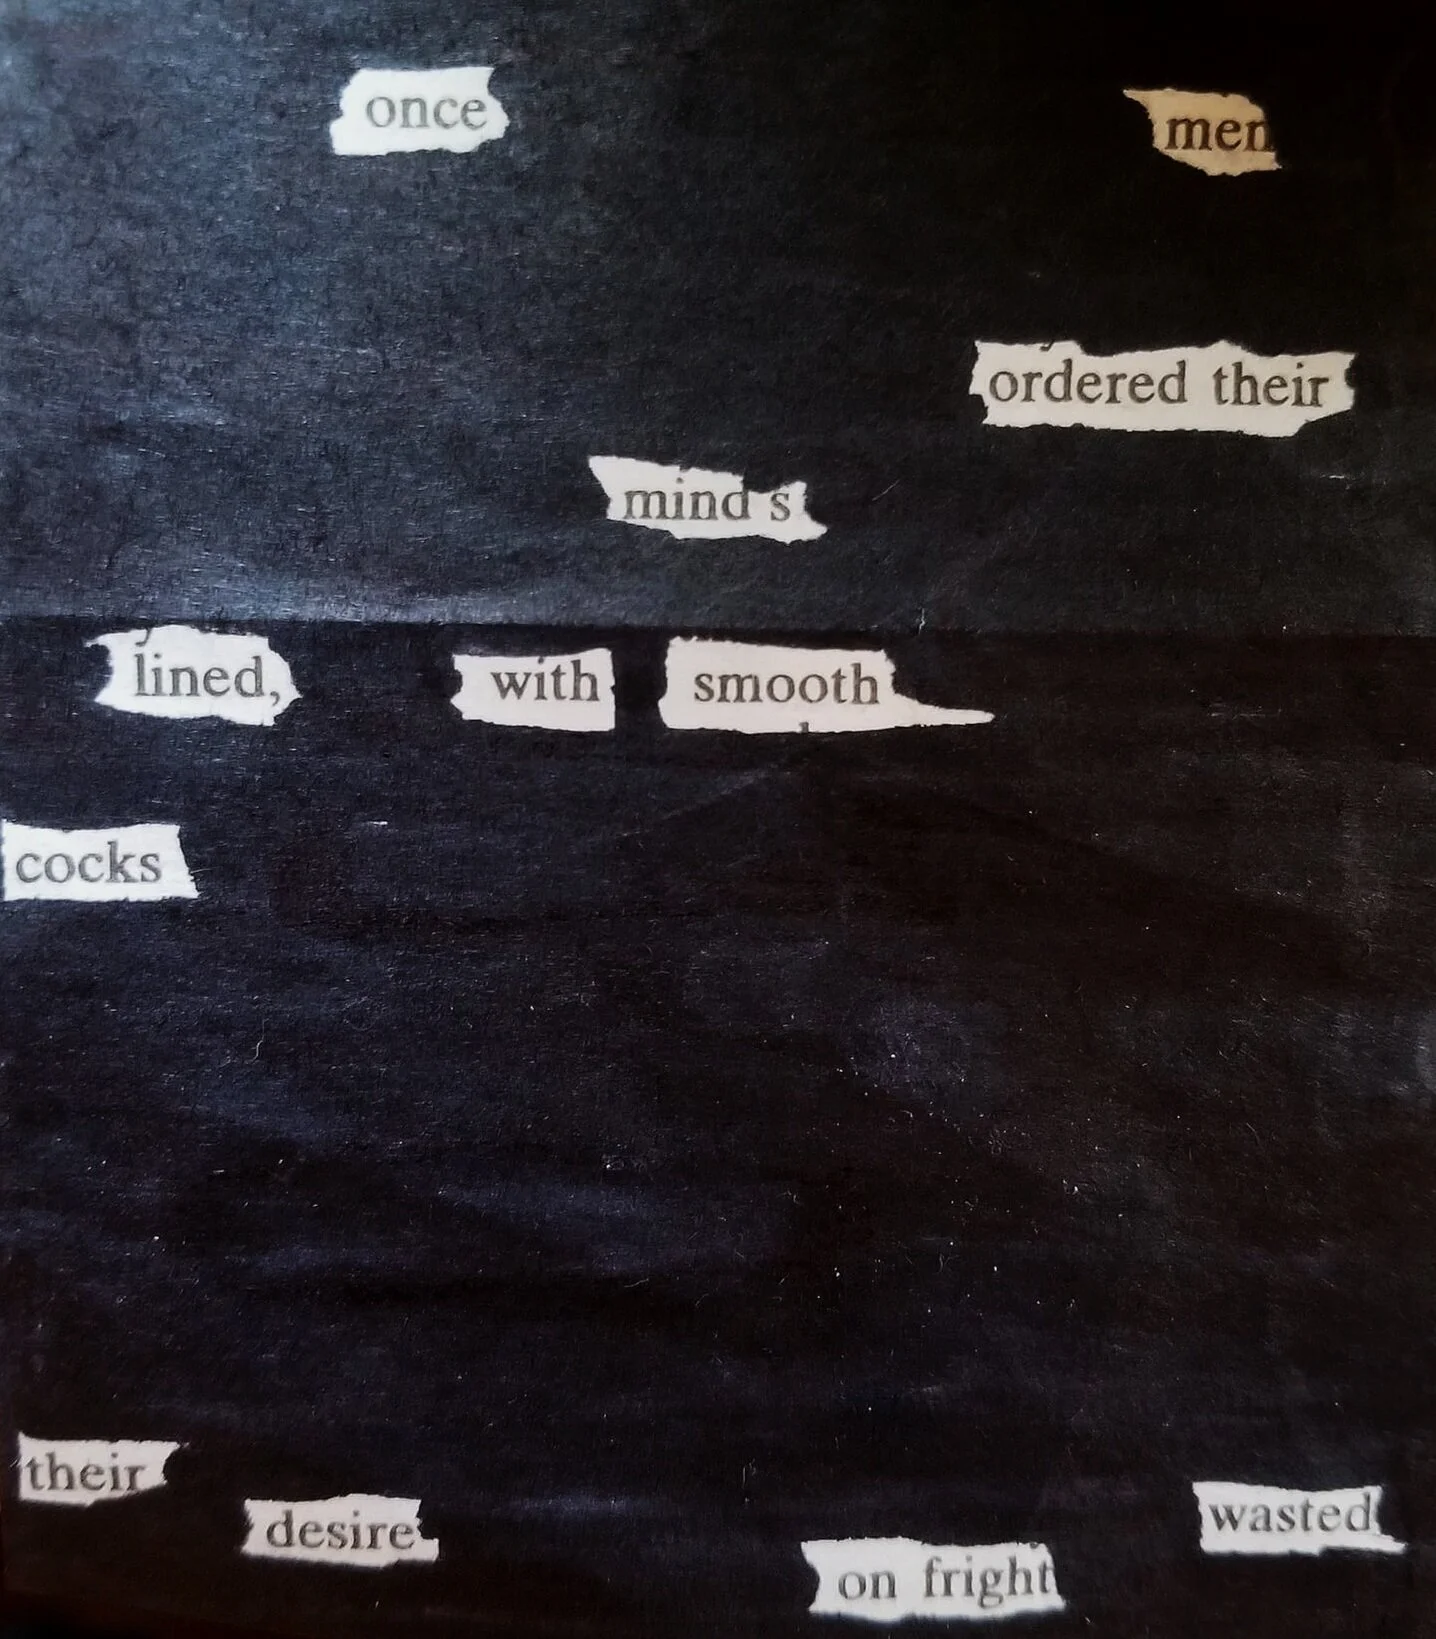 once men
ordered their
mind s
lined, with smooth
cocks
their
desire wasted
on fright